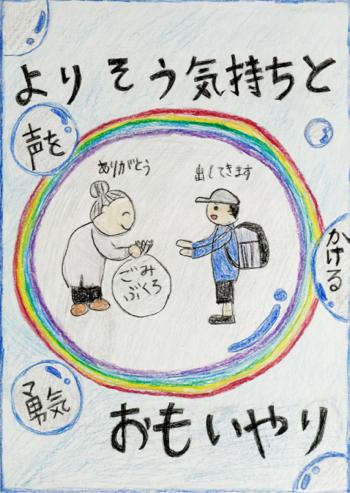 よりそう気持ちと
声を
かける
勇気
ありがとう
出してきます
ごみ
ぶくろ
おもいやり